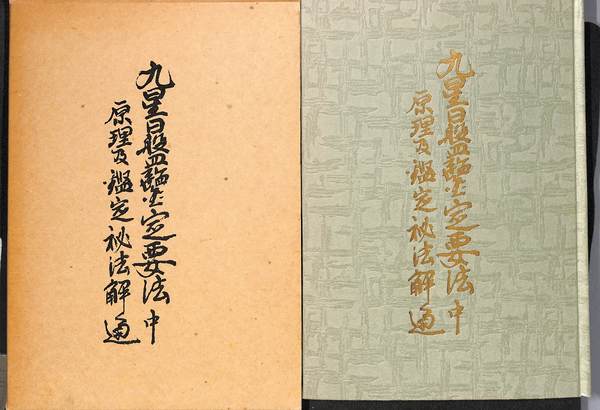 九星日盤鑑定要法 中
原理及鑑定秘法解通
九星日盤鑑定要法 中
原理及鑑定秘法解通